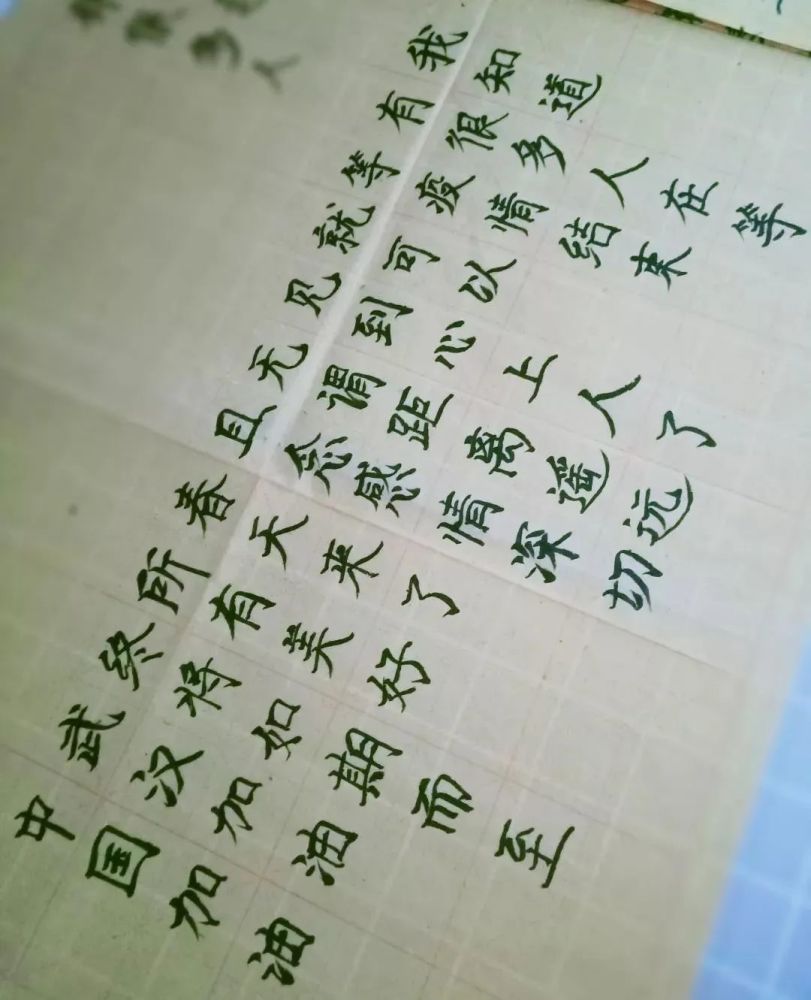 我知道
有很多人在等
等疫情结束
就可以
见到心上人了
无谓距离遥远
且念感情深切
春天来了
所有美好
终将如期而至
武汉加油
中国加油